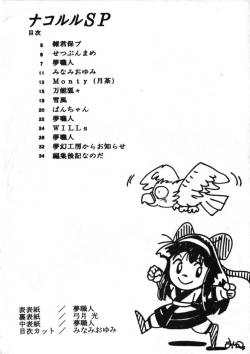 ナコルルSP
目次
5 雑君保プ
6 せつぶんまめ
7 夢職人
11 みなみおゆみ
12 Monty(月茶)
15 万能狐々
19 雪風
20 ぱんちゃん
22 夢職人
24 WILLs
28 夢職人
32 夢幻工房からお知らせ
34 編集後記なのだ
表表紙 / 夢職人
裏表紙 / 弓月 光
中表紙 / 夢職人
目次カット / みなみおゆみ